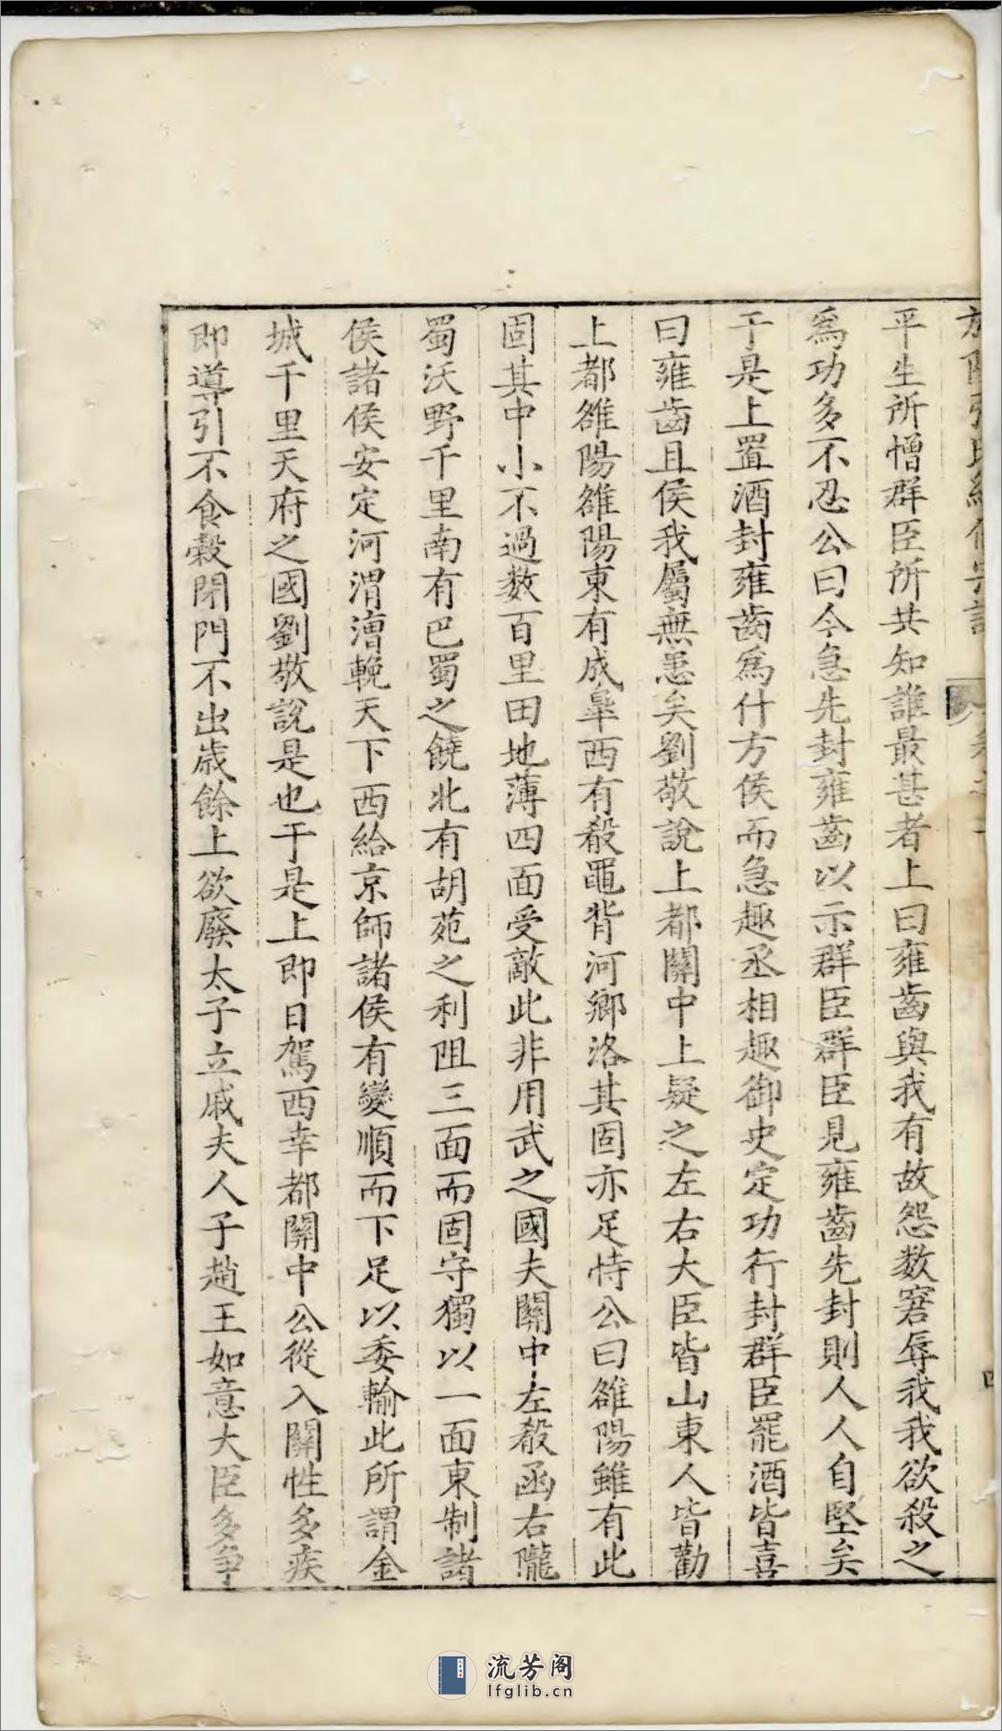 平生所憎群臣所共知誰最甚者上曰雍齒與我有故怨数窘辱我我欲殺之
爲功多不忍公曰今急先封雍齒以示群臣群臣見雍齒先封則人人自堅矣
于是上置酒封雍齒爲什方侯而急趣丞相趣御史定功行封群臣罷酒皆喜
曰雍齒且侯我屬無恙矣劉敬說上都關中上疑之左右大臣皆山東人皆勸
上都雒陽雒陽東有成臯西有殽黽背河鄉洛其固亦足恃公曰雒陽雖有此
固其中小不過数百里田地薄四面受敵此非用武之國夫關中左殽函右隴
蜀沃野千里南有巴蜀之饒北有胡苑之利阻三面而固守獨以一面東制諸
侯諸侯安定河渭漕輓天下西給京師諸侯有變順而下足以委輸此所謂金
城千里天府之國劉敬說是也于是上即日駕西幸都關中公從入關性多疾
即導引不食穀閉門不出歲餘上欲廢太子立戚夫人子趙王如意大臣多爭
流芳阁
lfglib.cn